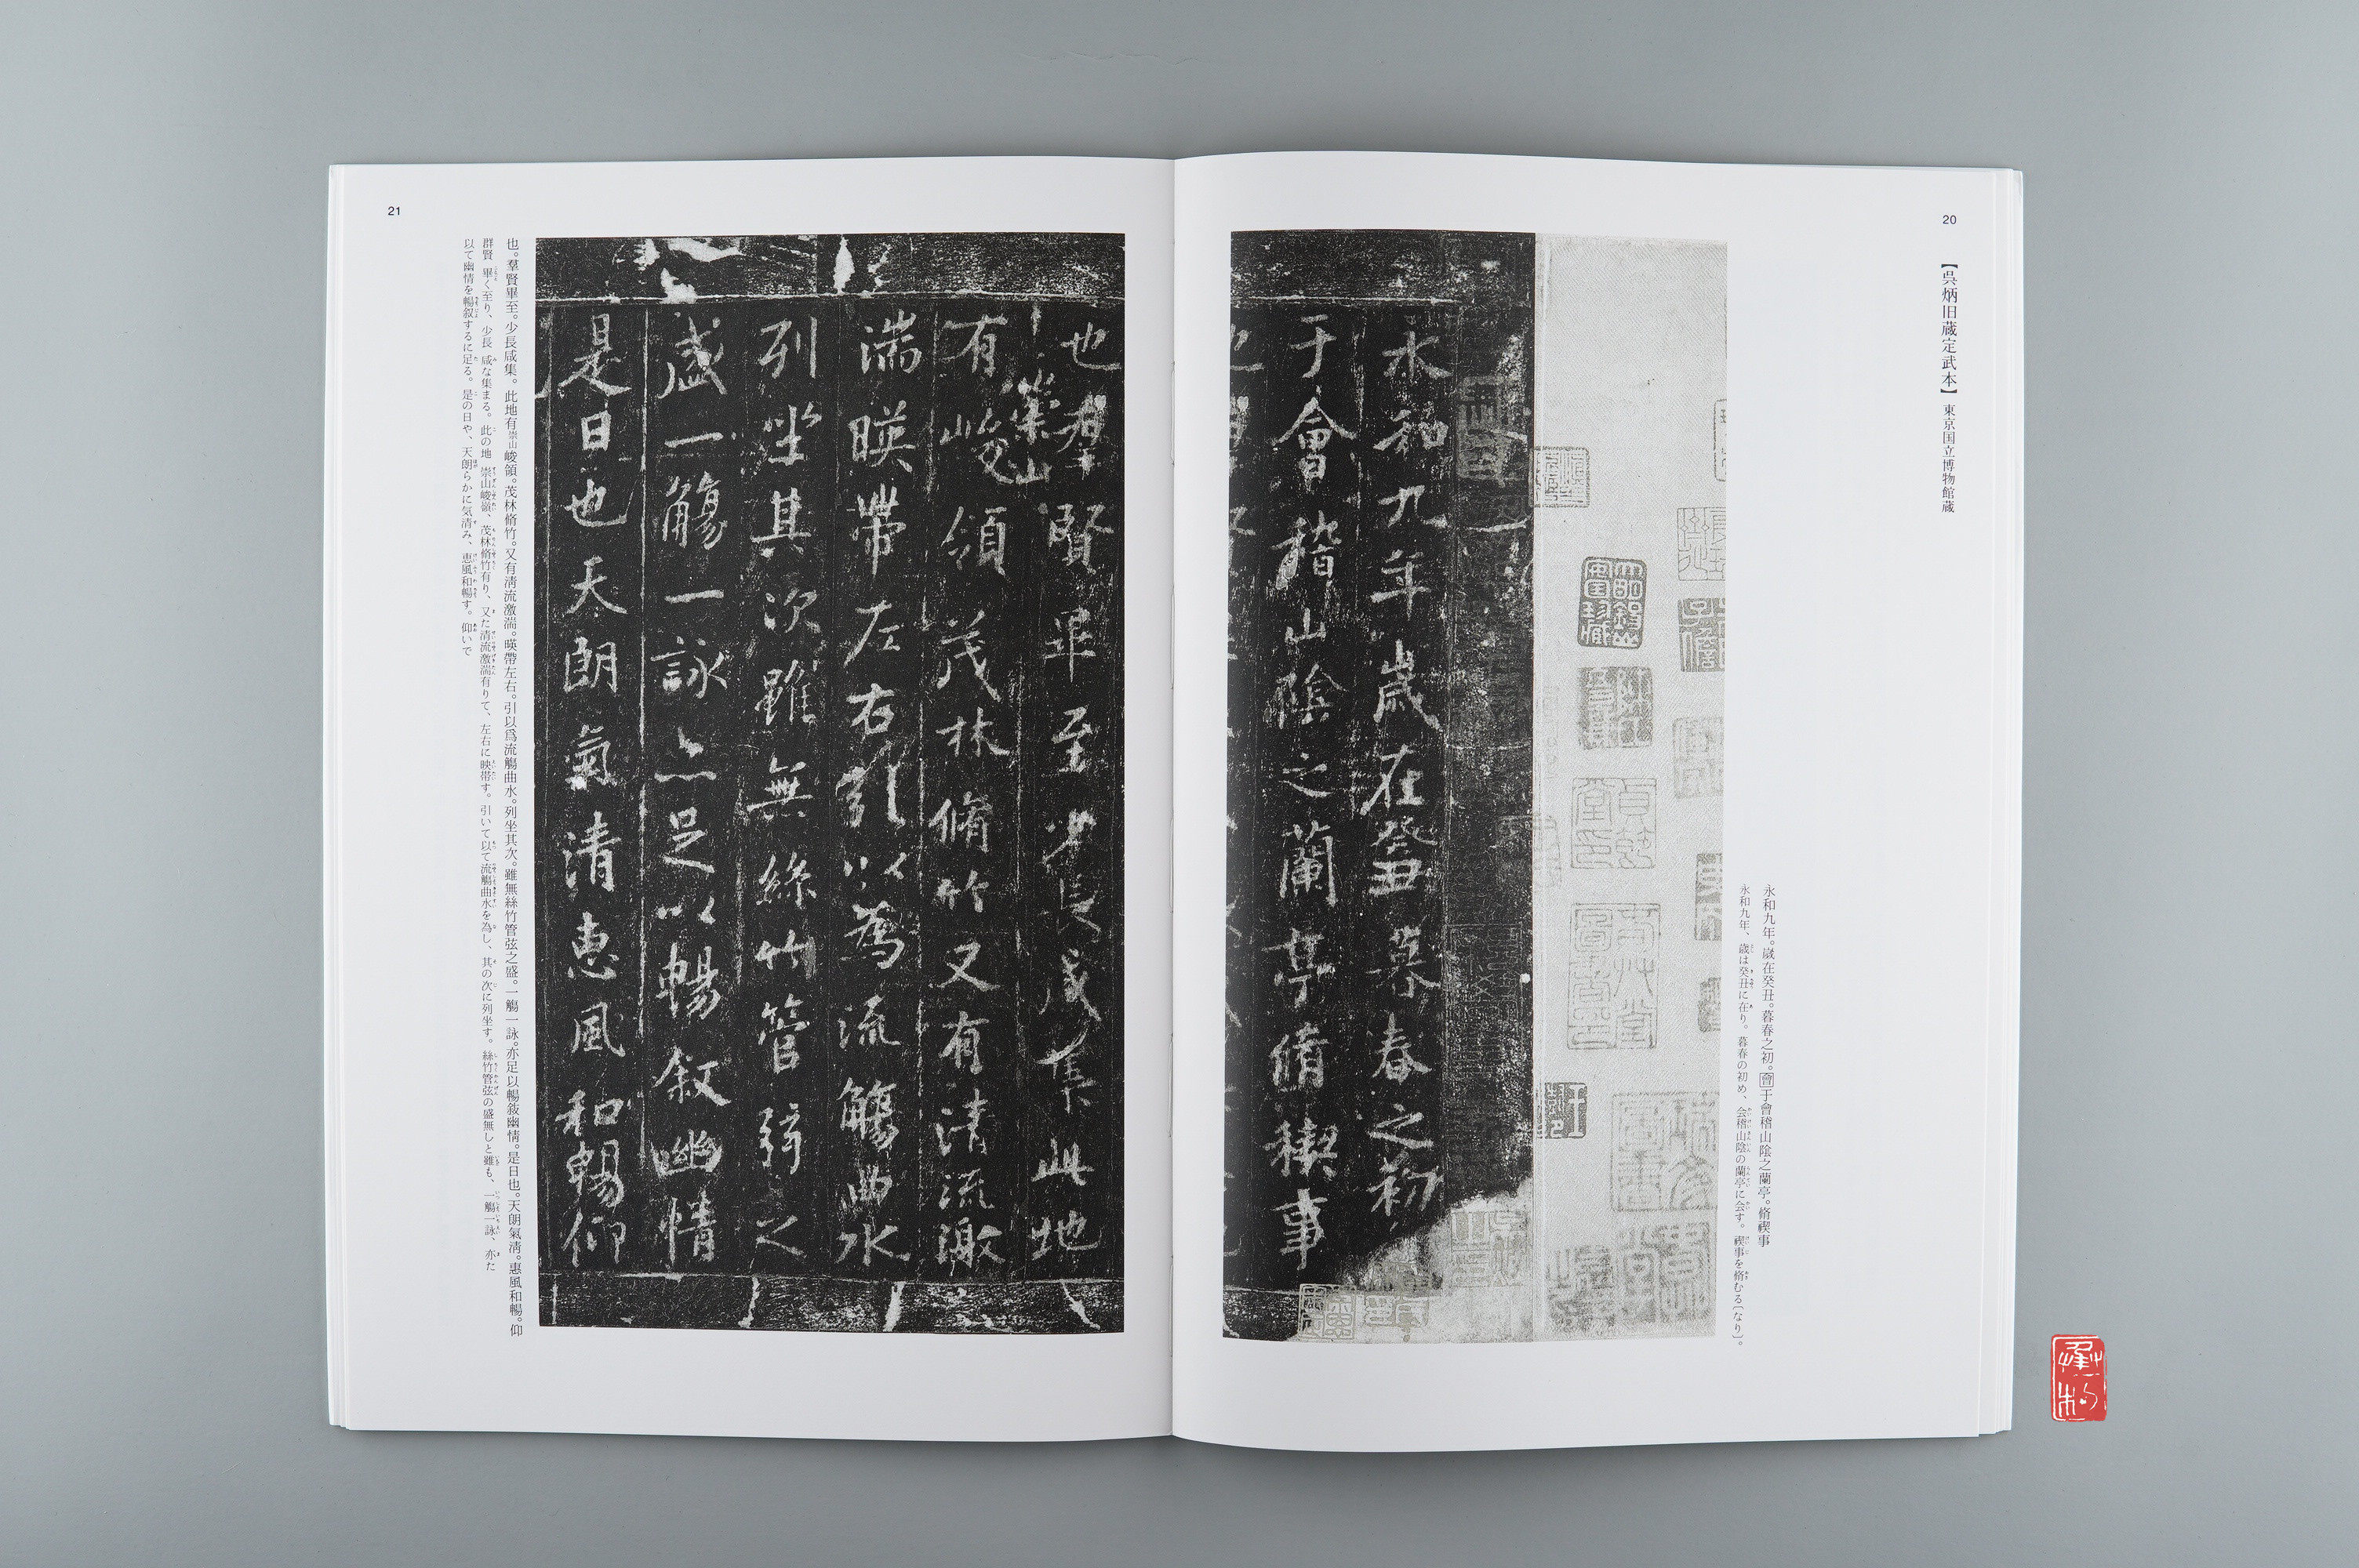 20
【呉炳旧蔵定武本】 東京国立博物館蔵
永和九年。歲在癸丑。暮春之初。會于會稽山陰之蘭亭。脩禊事
永和九年、歳は癸丑に在り。暮春の初め、会稽山陰の蘭亭に会す。禊事を脩むる〔なり〕。
永和九年歲在癸丑暮春之初
于會稽山陰之蘭亭脩禊事
21
也羣賢畢至少長咸集此地
有崇山峻領茂林脩竹又有清流激
湍暎帶左右引以為流觴曲水
列坐其次雖無絲竹管弦之
盛一觴一詠亦足以暢敘幽情
是日也天朗氣清惠風和暢仰
也。羣賢畢至。少長咸集。此地有崇山峻領。茂林脩竹。又有淸流激湍。暎帶左右。引以爲流觴曲水。列坐其次。雖無絲竹管弦之盛。一觴一詠。亦足以暢敍幽情。是日也。天朗氣淸。惠風和暢。仰
群賢 畢く至り、少長 咸な集まる。此の地 崇山峻嶺、茂林脩竹有り、又た清流激湍有りて、左右に映帯す。引いて以て流觴曲水を為し、其の次に列坐す。絲竹管弦の盛無しと雖も、一觴一詠、亦た
以て幽情を暢叙するに足る。是の日や、天朗らかに気清み、恵風和暢す。仰いで